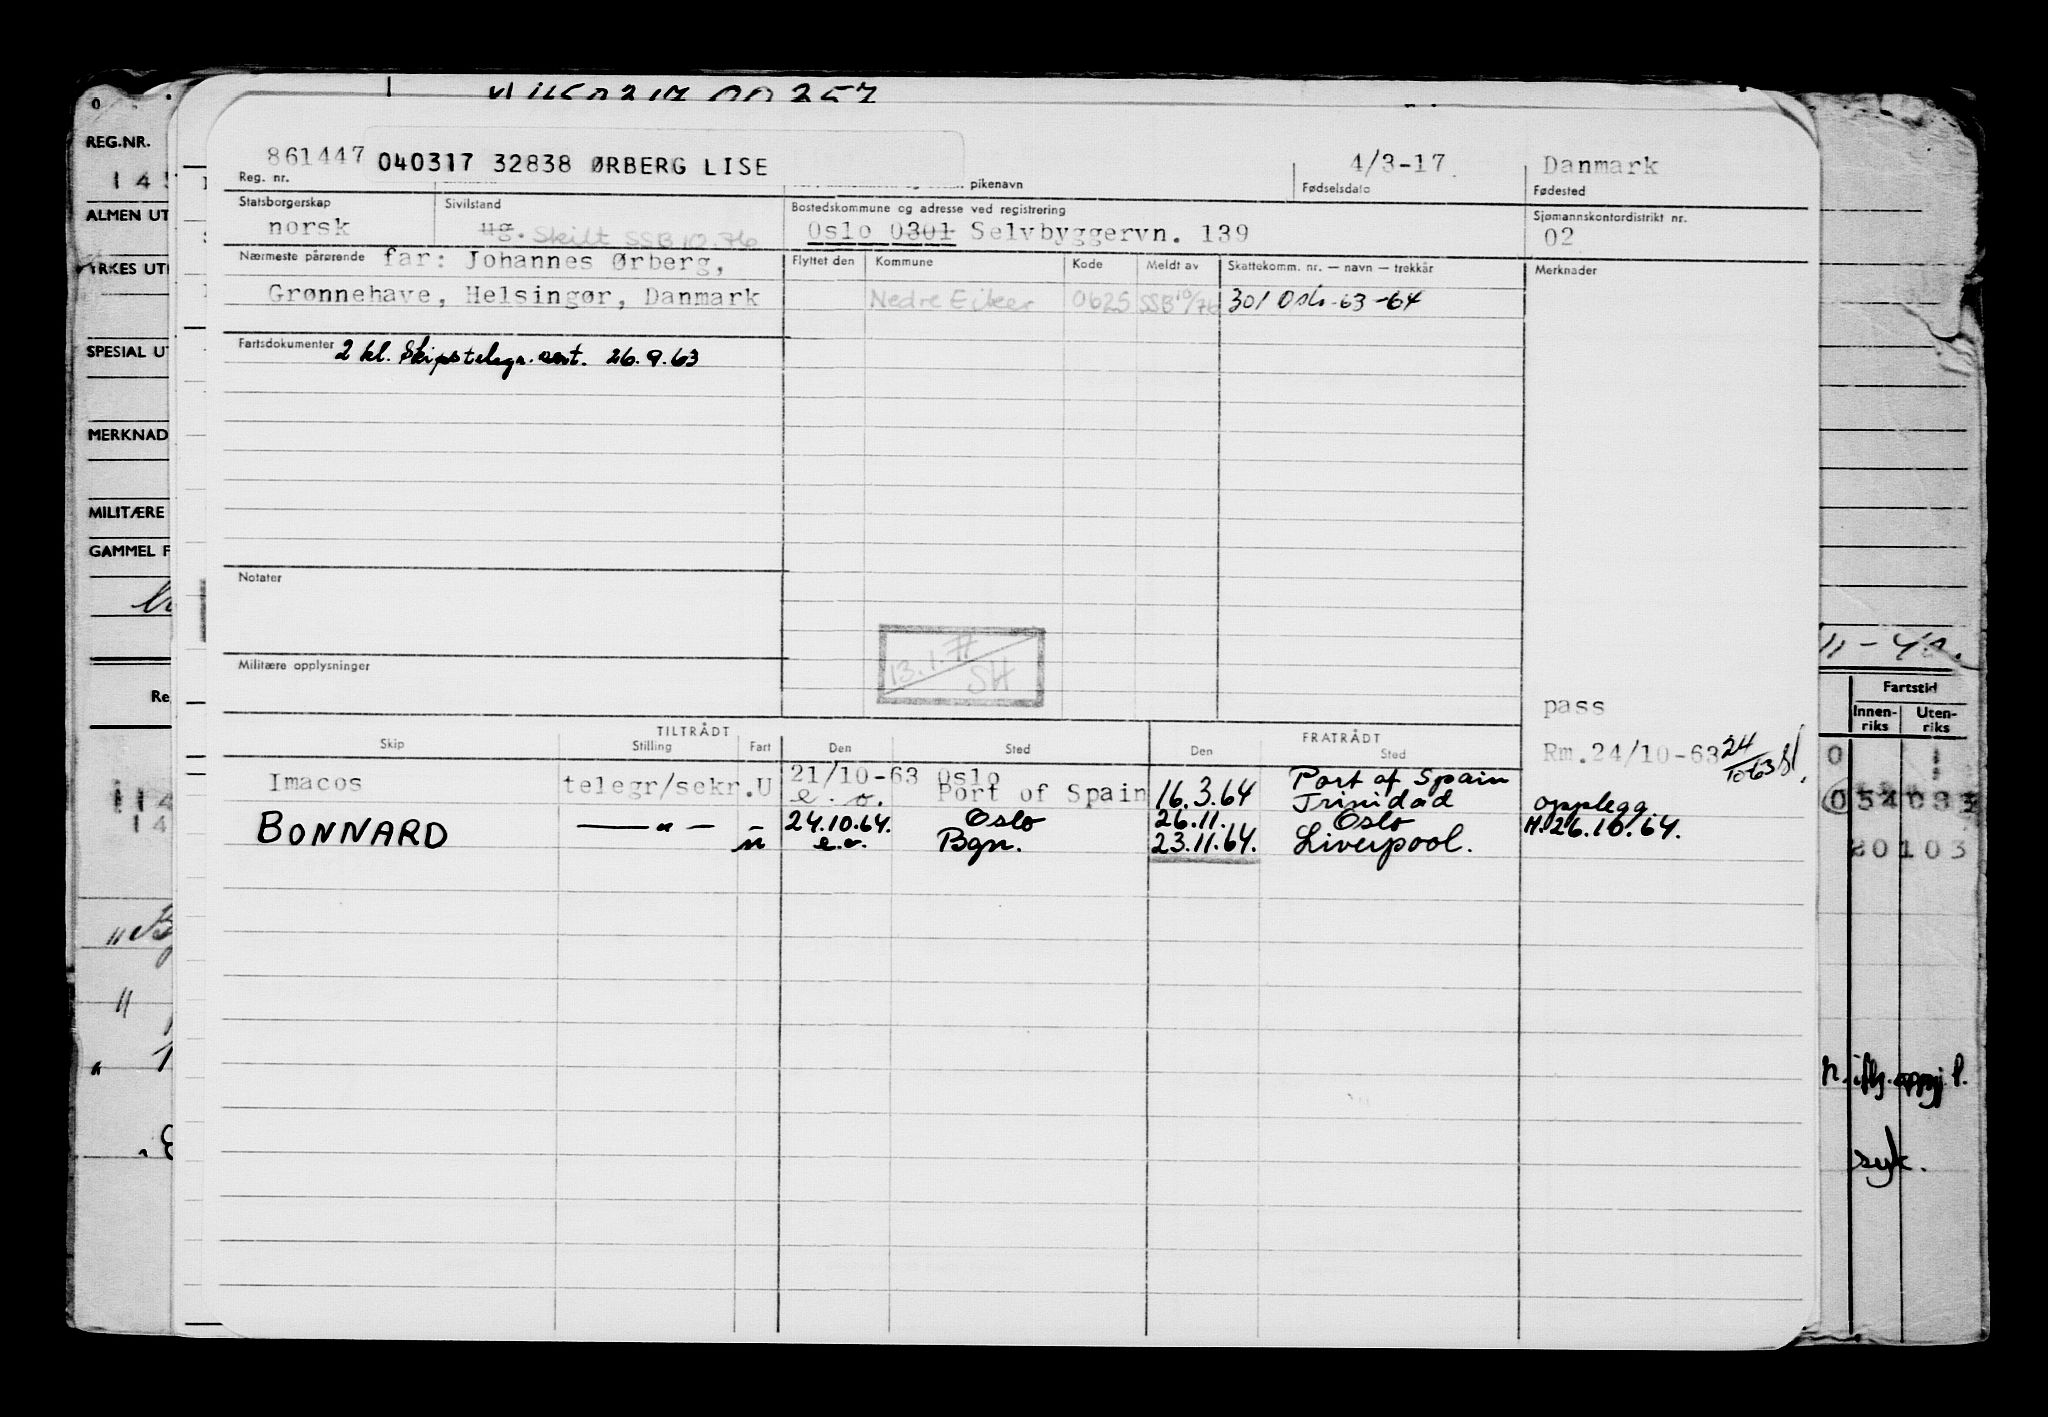 861447 040317 32838 ØRBERG LISE 4/3-17 Danmark
Reg. nr. pikenavn Fødselsdato Fødested
Statsborgerskap Sivilstand Bostedskommune og adresse ved registrering Sjømannskontordistrikt nr.
norsk ug. Skilt SSB 10.76 Oslo 0301 Selvbyggervn. 139 02
Nærmeste pårørende far: Johannes Ørberg, Flyttet den Kommune Kode Meldt av Skattekomm. nr. — navn — trekkår Merknader
Grønnehave, Helsingør, Danmark Nedre Eiker 0625 SSB 10/76 301 Oslo-63-64
Fartsdokumenter 2 kl. Skipstelegr. sert. 26.9.63
Notater
13.1.77
SH
Militære opplysninger
pass
TILTRÅDT FRATRÅDT
Skip Stilling Fart Den Sted Den Sted
Rm.24/10-63 24/10 63
Imacos telegr/sekr.U 21/10-63 Oslo Port of Spain
e.o. Port of Spain 16.3.64 Trinidad opplegg
BONNARD —"— 24.10.64. Oslo 26.11. Oslo M.26.10.64.
e.o. Bgn. 23.11.64. Liverpool.
REG.NR.
145
ALMEN UT
YRKES UT
SPESIAL UT
MERKNAD
MILITÆRE
GAMMEL F
Re
114
14
11-4
Fartstid
Innen-riks Uten-riks
0 1
20103
syk.